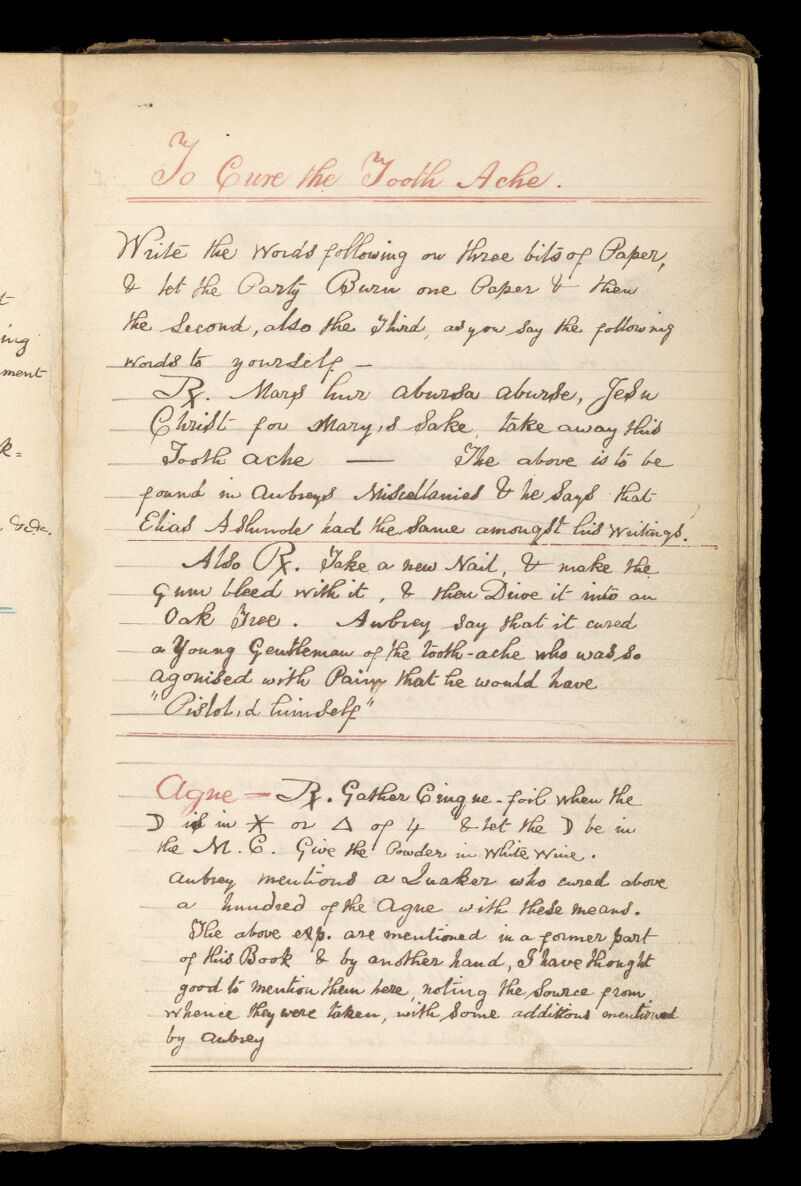 t
ing
ment
k=
&c&c.
To Cure the Tooth Ache.
Write the words following on three bits of Paper,
& let the Party Burn one Paper & then
the Second, also the Third, as you say the following
words to yourself —
℞. Mars hur abursa aburse, Jesu
Christ for Mary,s Sake, take away this
Tooth ache — The above is to be
found in Aubreys Miscellanies & he Says that
Elias Ashmole had the same amongst his writings.
Also ℞. Take a new Nail, & make the
gum bleed with it, & then Drive it into an
Oak Tree. Aubrey say that it cured
a Young Gentleman of the tooth-ache who was so
agonised with Pain that he would have
"Pistol,d himself"
Ague — ℞. Gather Cinque-foil when the
☽ is in ⚹ or △ of ♃ & let the ☽ be in
the M.C. Give the Powder in White Wine.
Aubrey mentions a Quaker who cured above
a hundred of the Ague with these means.
The above exp. are mentioned in a former part
of this Book & by another hand, I have thought
good to mention them here, noting the Source from
whence they were taken, with Some additions mentioned
by Aubrey